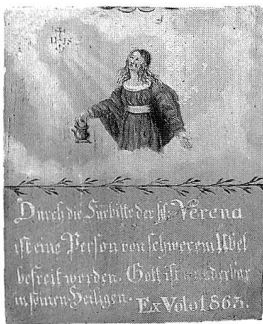 IHS
Durch die Fürbitte der hl: Verena
ist eine Person von schwerem Übel
befreit worden. Gott ist wunderbar
in seinen Heiligen. Ex Voto 1863.